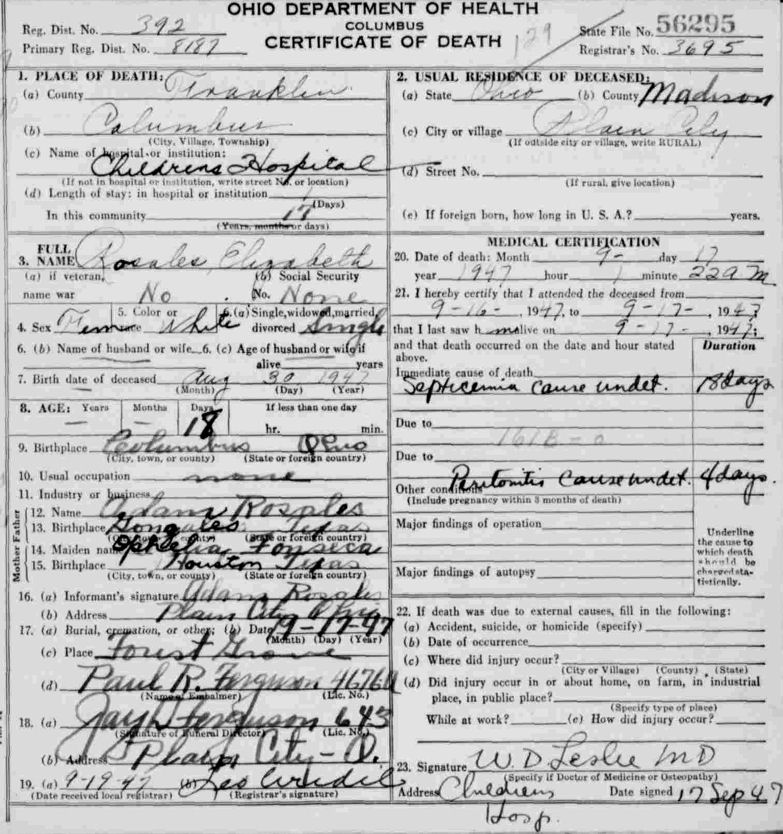 OHIO DEPARTMENT OF HEALTH
COLUMBUS
CERTIFICATE OF DEATH
129
Reg. Dist. No. 392
Primary Reg. Dist. No. 8187
State File No. 56295
Registrar's No. 3695
1. PLACE OF DEATH:
(a) County Franklin
(b) Columbus
(City, Village, Township)
(c) Name of hospital or institution:
Childrens Hospital
(If not in hospital or institution, write street No. or location)
(d) Length of stay: in hospital or institution 1
(Days)
In this community 17
(Years, months or days)
2. USUAL RESIDENCE OF DECEASED:
(a) State Ohio (b) County Madison
(c) City or village Plain City
(If outside city or village, write RURAL)
(d) Street No.
(If rural, give location)
(e) If foreign born, how long in U. S. A.? years.
3. FULL NAME Rosales, Elizabeth
(a) if veteran, name war No
(b) Social Security No. None
4. Sex Female
5. Color or race White
6. (a) Single, widowed, married, divorced Single
6. (b) Name of husband or wife
6. (c) Age of husband or wife if alive years
7. Birth date of deceased Aug 30 1947
(Month) (Day) (Year)
8. AGE: Years Months Days If less than one day
- - 18 hr. min.
9. Birthplace Columbus Ohio
(City, town, or county) (State or foreign country)
10. Usual occupation none
11. Industry or business
Father
12. Name Adam Rosales
13. Birthplace Gonzales Texas
(City, town, or county) (State or foreign country)
Mother
14. Maiden name Ophelia Fonseca
15. Birthplace Houston Texas
(City, town, or county) (State or foreign country)
16. (a) Informant's signature Adam Rosales
(b) Address Plain City Ohio
17. (a) Burial, cremation, or other; (b) Date 9-17-47
(Month) (Day) (Year)
(c) Place Forest Grove
(d) Paul R. Ferguson 4676A
(Name of Embalmer) (Lic. No.)
18. (a) Ferguson 643
(Signature of Funeral Director) (Lic. No.)
(b) Address Plain City - O.
19. (a) 9-19-47 (b) Leo
(Date received local registrar) (Registrar's signature)
MEDICAL CERTIFICATION
20. Date of death: Month 9- day 17
year 1947 hour 1 minute 22 A M.
21. I hereby certify that I attended the deceased from
9-16-, 1947, to 9-17-, 1947
that I last saw h alive on 9-17-, 1947;
and that death occurred on the date and hour stated above.
Duration
Immediate cause of death
Septicemia cause undet. 18 days
Due to
161B-0
Due to
Other conditions Peritonitis cause undet. 4 days.
(Include pregnancy within 3 months of death)
Major findings of operation
Major findings of autopsy
Underline the cause to which death should be charged statistically.
22. If death was due to external causes, fill in the following:
(a) Accident, suicide, or homicide (specify)
(b) Date of occurrence
(c) Where did injury occur?
(City or Village) (County) (State)
(d) Did injury occur in or about home, on farm, in industrial place, in public place?
(Specify type of place)
While at work? (e) How did injury occur?
23. Signature W. D. Leslie MD
(Specify if Doctor of Medicine or Osteopathy)
Address Childrens Hosp. Date signed 17 Sep 47